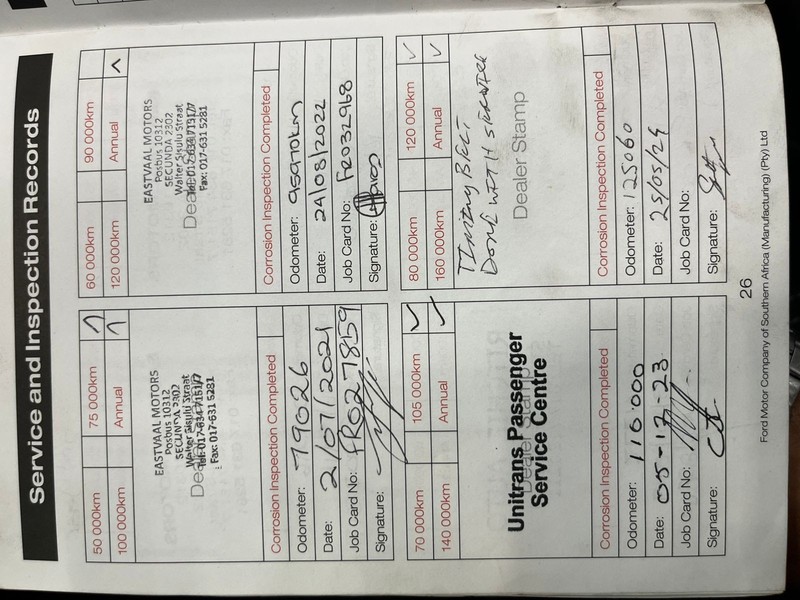 Service and Inspection Records
50 000km 75 000km
100 000km Annual
EASTVAAL MOTORS
Posbus 10312
SECUNDA 2302
Walter Sisulu Straat
Tel: 017-634 7151/7
Fax: 017-631 5281
Corrosion Inspection Completed
Odometer: 79026
Date: 2/07/2021
Job Card No: FR027859
Signature:
60 000km 90 000km
120 000km Annual
EASTVAAL MOTORS
Posbus 10312
SECUNDA 2302
Walter Sisulu Straat
Tel: 017-634 7151/7
Fax: 017-631 5281
Corrosion Inspection Completed
Odometer: 95970km
Date: 24/08/2022
Job Card No: FR032968
Signature:
70 000km 105 000km
140 000km Annual
Unitrans Passenger
Dealer Stamp
Service Centre
Corrosion Inspection Completed
Odometer: 116 000
Date: 05-12-23
Job Card No:
Signature:
80 000km 120 000km
160 000km Annual
TIMING BELT
DONE WITH SERVICE
Dealer Stamp
Corrosion Inspection Completed
Odometer: 125060
Date: 25/05/24
Job Card No:
Signature:
26
Ford Motor Company of Southern Africa (Manufacturing) (Pty) Ltd